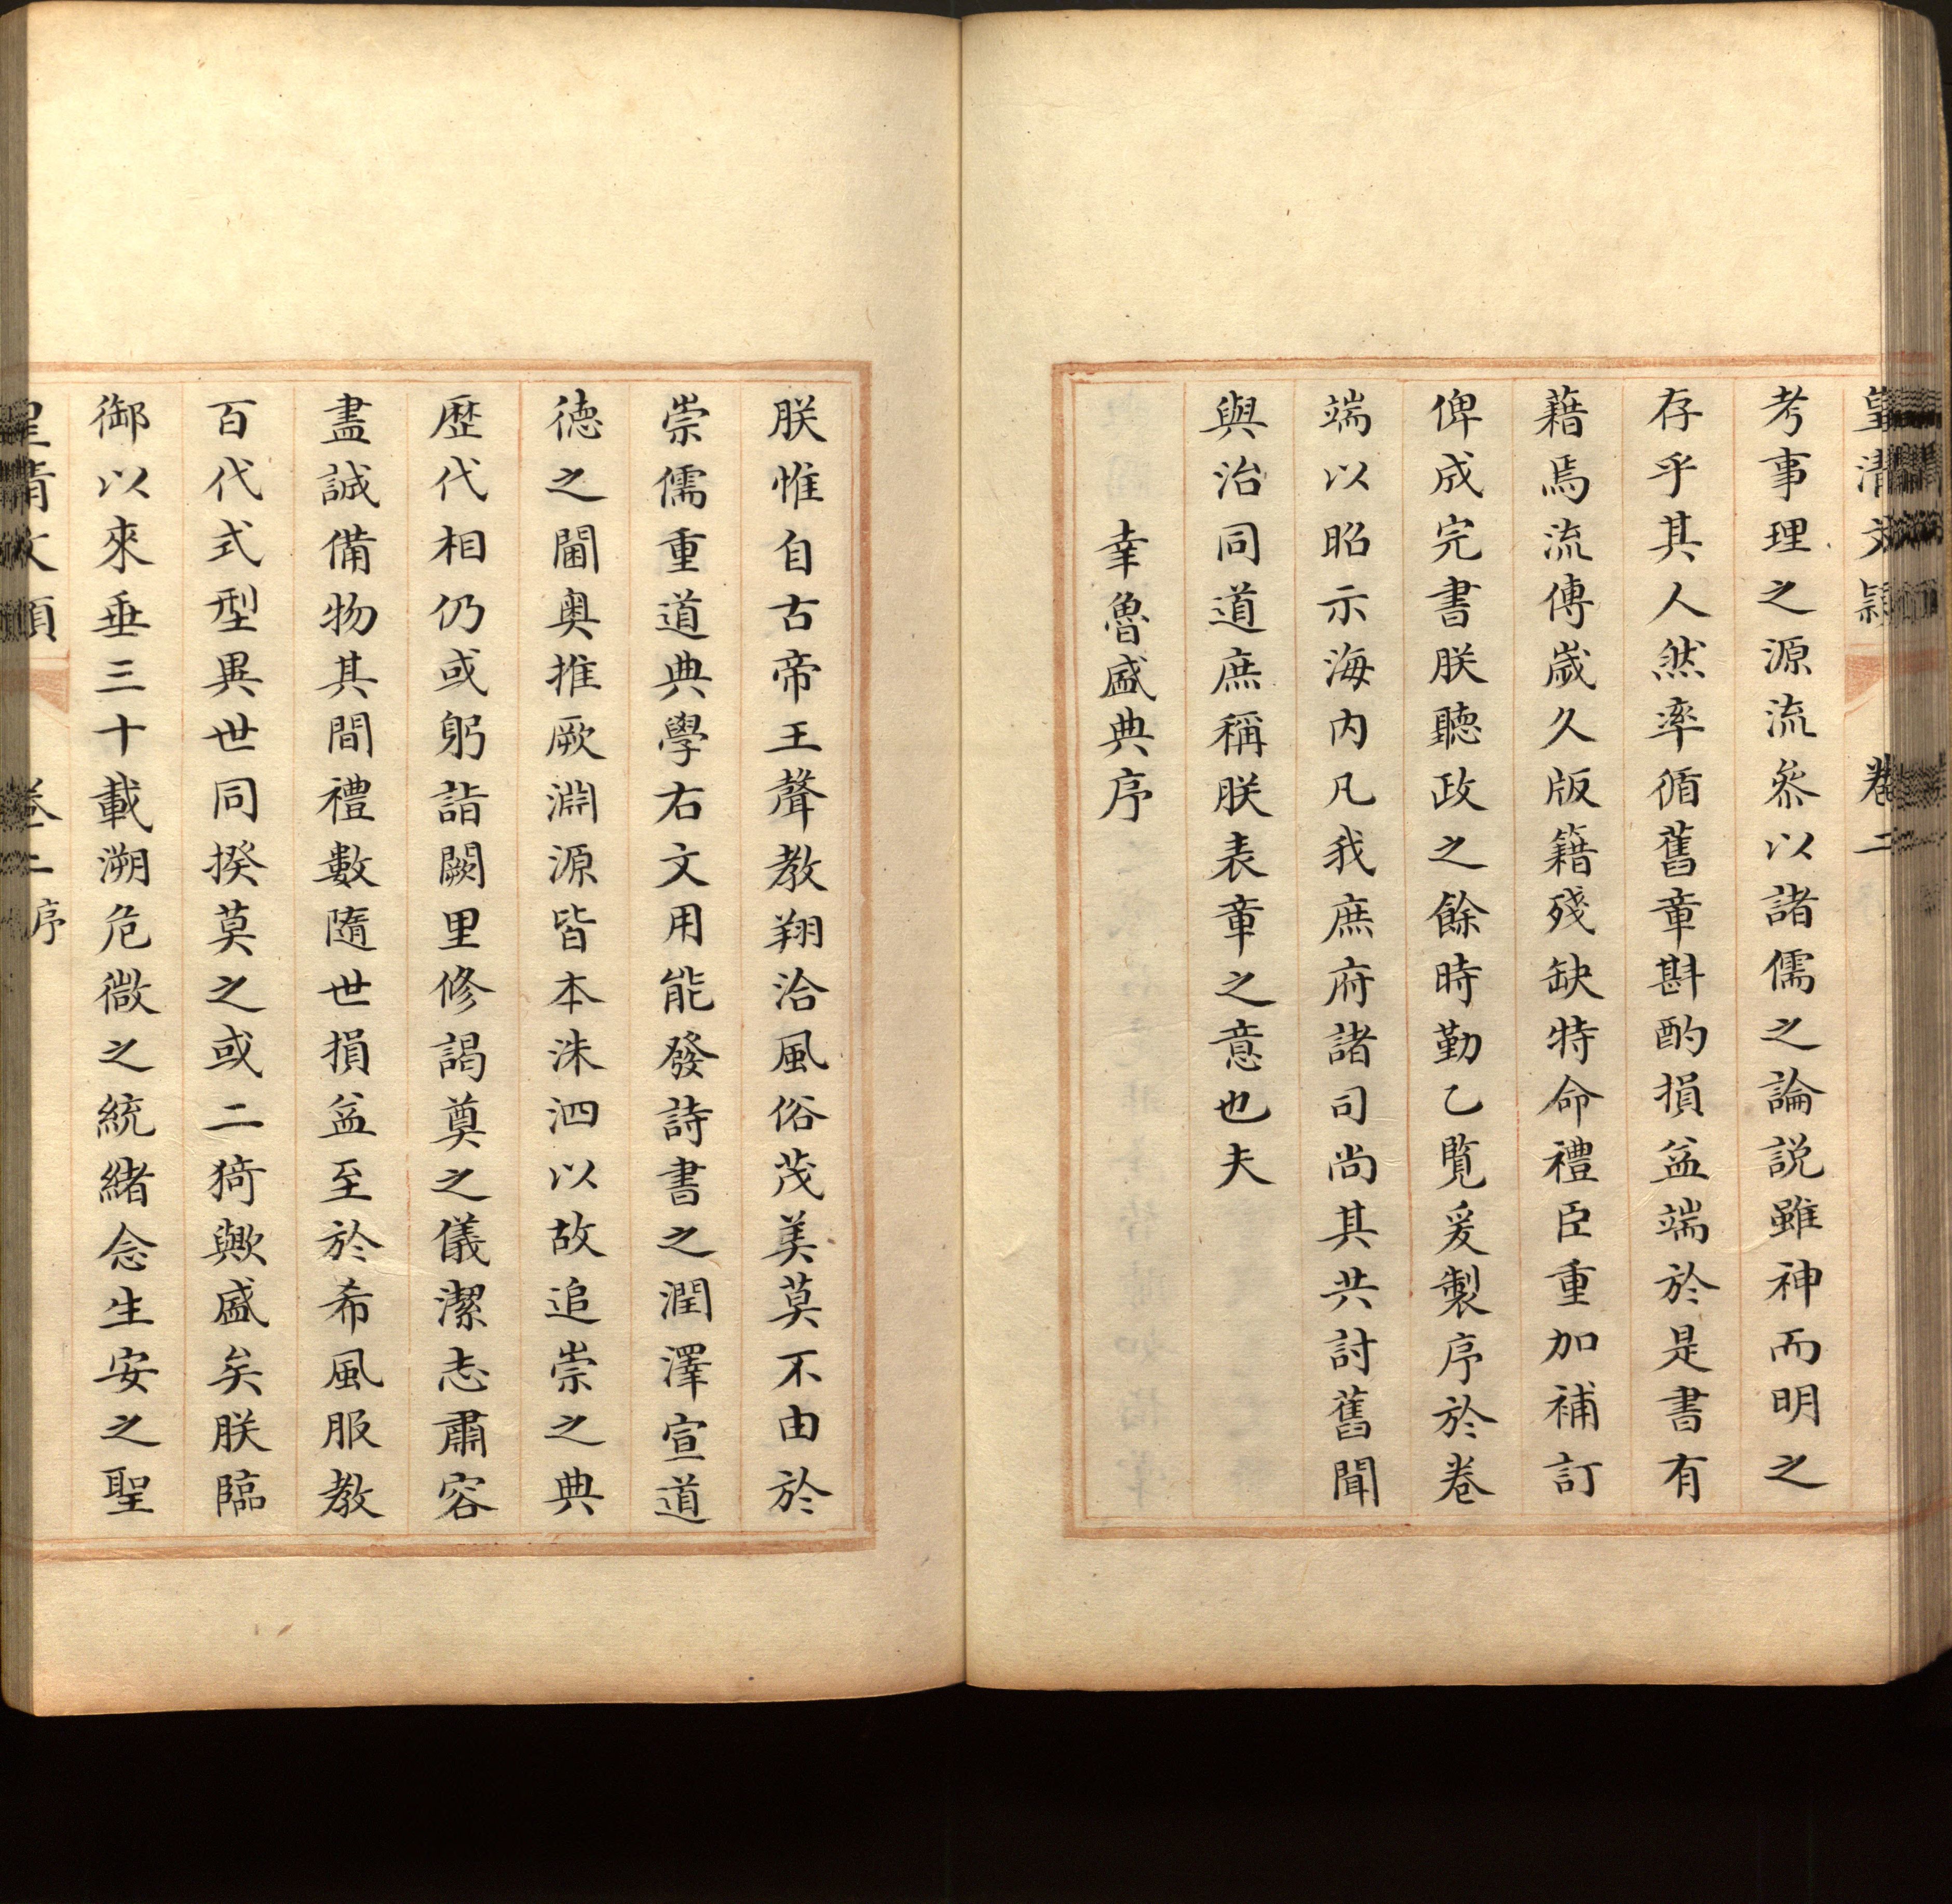 皇清文穎 卷二
考事理之源流叅以諸儒之論説雖神而明之
存乎其人然率循舊章斟酌損益端於是書有
藉焉流傳歲久版籍殘缺特命禮臣重加補訂
俾成完書朕聽政之餘時勤乙覽爰製序於卷
端以昭示海内凡我庶府諸司尚其共討舊聞
與治同道庶稱朕表章之意也夫
幸魯盛典序
朕惟自古帝王聲教翔洽風俗茂美莫不由於
崇儒重道典學右文用能發詩書之潤澤宣道
徳之閫奥推厥淵源皆本洙泗以故追崇之典
歴代相仍或躬詣闕里修謁奠之儀潔志肅容
盡誠備物其間禮數隨世損益至於希風服教
百代式型異世同揆莫之或二猗歟盛矣朕臨
御以來垂三十載溯危微之統緒念生安之聖
皇清文穎 卷二 序